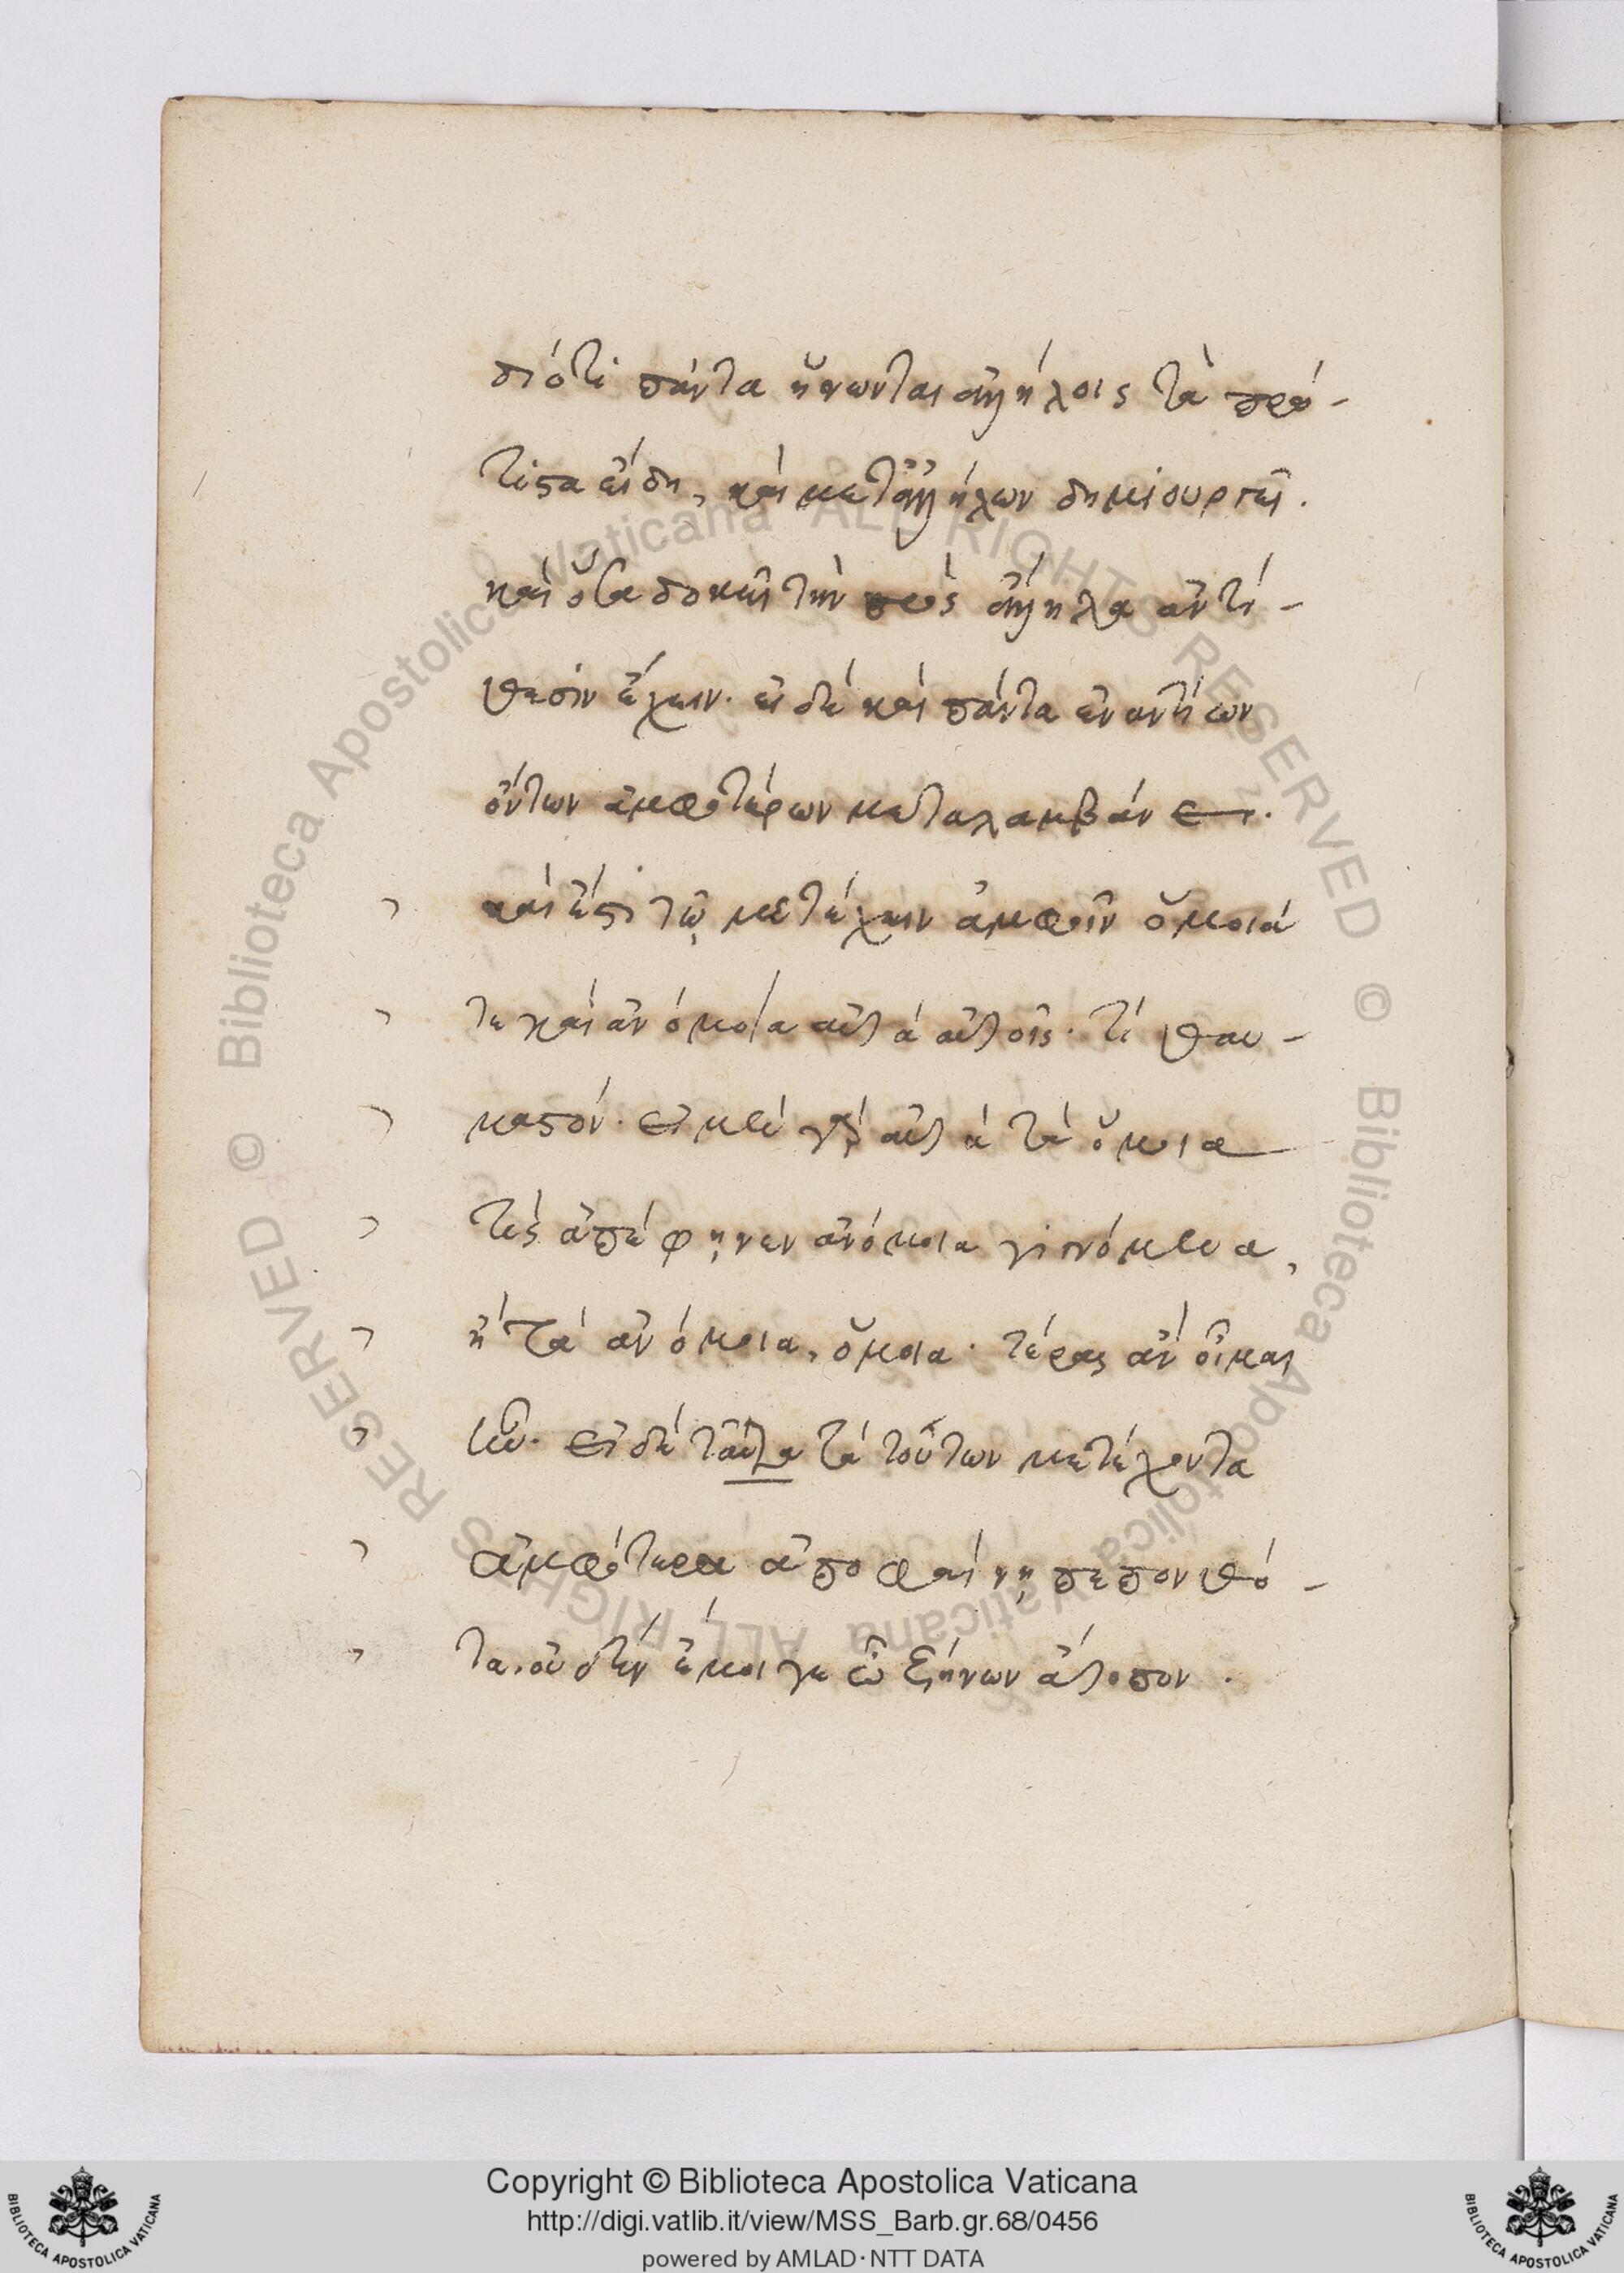 διότι πάντα ἥνωνται ἀλλήλοις τὰ πρώ-
τιστα εἴδη, καὶ μετ' ἀλλήλων δημιουργεῖ.
καὶ ὅσα δοκεῖ τὴν πρὸς ἄλληλα ἀντί-
θεσιν ἔχειν. εἰ δὲ καὶ πάντα ἐναντίων
ὄντων ἀμφοτέρων μεταλαμβάνει.
καὶ ἔστι τῷ μετέχειν ἀμφοῖν ὅμοιά
τε καὶ ἀνόμοια αὐτὰ αὑτοῖς. τί θαυ-
μαστόν. εἰ μὲν γὰρ αὐτὰ τὰ ὅμοια
τὶς ἀπέφῃνεν ἀνόμοια γιγνόμενα,
ἢ τὰ ἀνόμοια, ὅμοια. τέρας ἂν οἶμαι
ἦν. εἰ δὲ ταῦτα τὰ τούτων μετέχοντα
ἀμφότερα ἀποφαίνῃ πεπονθό-
τα. οὐδὲν ἔμοιγε ὦ ζήνων ἄτοπον.
Copyright © Biblioteca Apostolica Vaticana
http://digi.vatlib.it/view/MSS_Barb.gr.68/0456
powered by AMLAD·NTT DATA
Biblioteca Apostolica Vaticana ALL RIGHTS RESERVED ©
Biblioteca Apostolica Vaticana ALL RIGHTS RESERVED ©
BIBLIOTECA APOSTOLICA VATICANA
BIBLIOTECA APOSTOLICA VATICANA